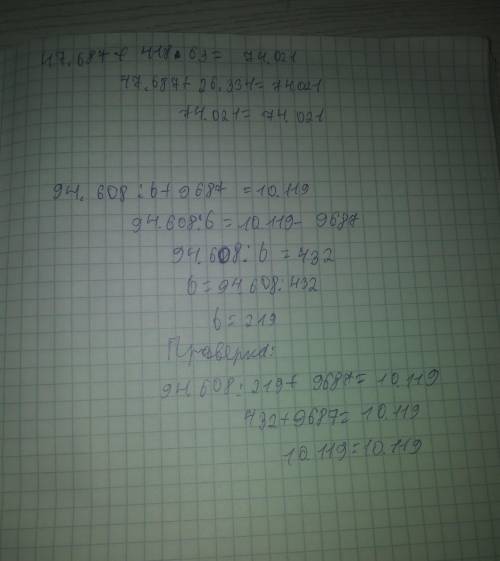 47.687+ 418•63= 74.021
47.687+ 26.334= 74.021
74.021= 74.021
94.608:b+9687=10.119
94.608:b=10.119-9687
94.608:b=432
b=94.608:432
b=219
Проверка:
94.608:219+9687=10.119
432+9687=10.119
10.119=10.119